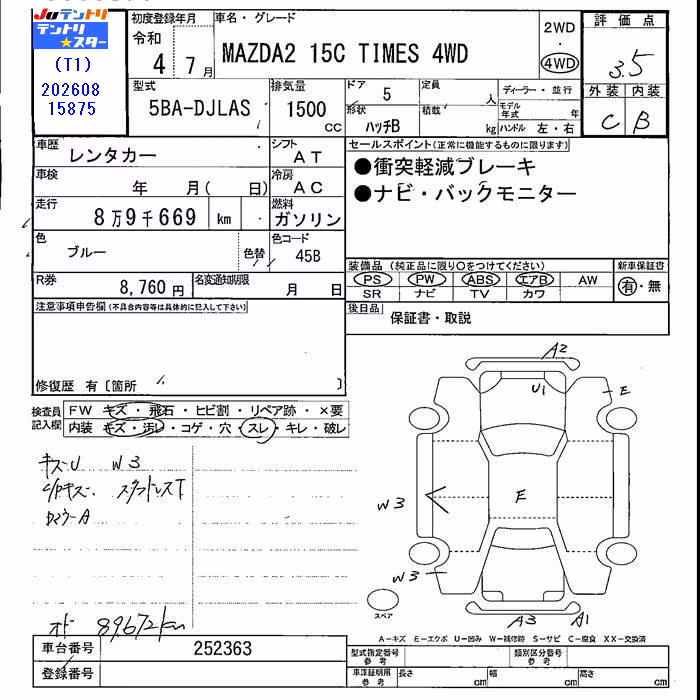 Juテントリ
テントリ
★スター
(T1)
202608
15875
初度登録年月
令和
4 7月
車名・グレード
MAZDA2 15C TIMES 4WD
2WD
・
4WD
評価点
3.5
外装 内装
C B
型式
5BA-DJLAS
排気量
1500
CC
ドア
5
形状
ハッチB
定員
人
積載
kg
ディーラー・並行
モデル年式 年
ハンドル 左・右
車歴
レンタカー
シフト
AT
車検
年 月( 日)
冷房
AC
走行
8万9千669 km
燃料
ガソリン
色
ブルー
色替
色コード
45B
R券
8,760円
名変通知期限
月 日
セールスポイント(正常に機能するものに限ります)
●衝突軽減ブレーキ
●ナビ・バックモニター
装備品 (純正品に限り○をつけてください)
PS PW ABS エアB AW
SR ナビ TV カワ
新車保証書
有・無
後日品
保証書・取説
注意事項申告欄(不具合内容等は具体的に記入して下さい)
修復歴 有〔箇所 〕
検査員
記入欄
FW キズ・飛石・ヒビ割・リペア跡・×要
内装 キズ・汚レ・コゲ・穴・スレ・キレ・破レ
キズU W3
オド 89672km
A2
U1
E
W3
E
W3
E
A3 A1
スペア
A-キズ E-エクボ U-凹み W-補修跡 S-サビ C-腐食 XX-交換済
車台番号
252363
登録番号
型式指定番号
参考
類別区分番号
参考
車庫証明用
参考
長さ cm
幅 cm
高さ cm